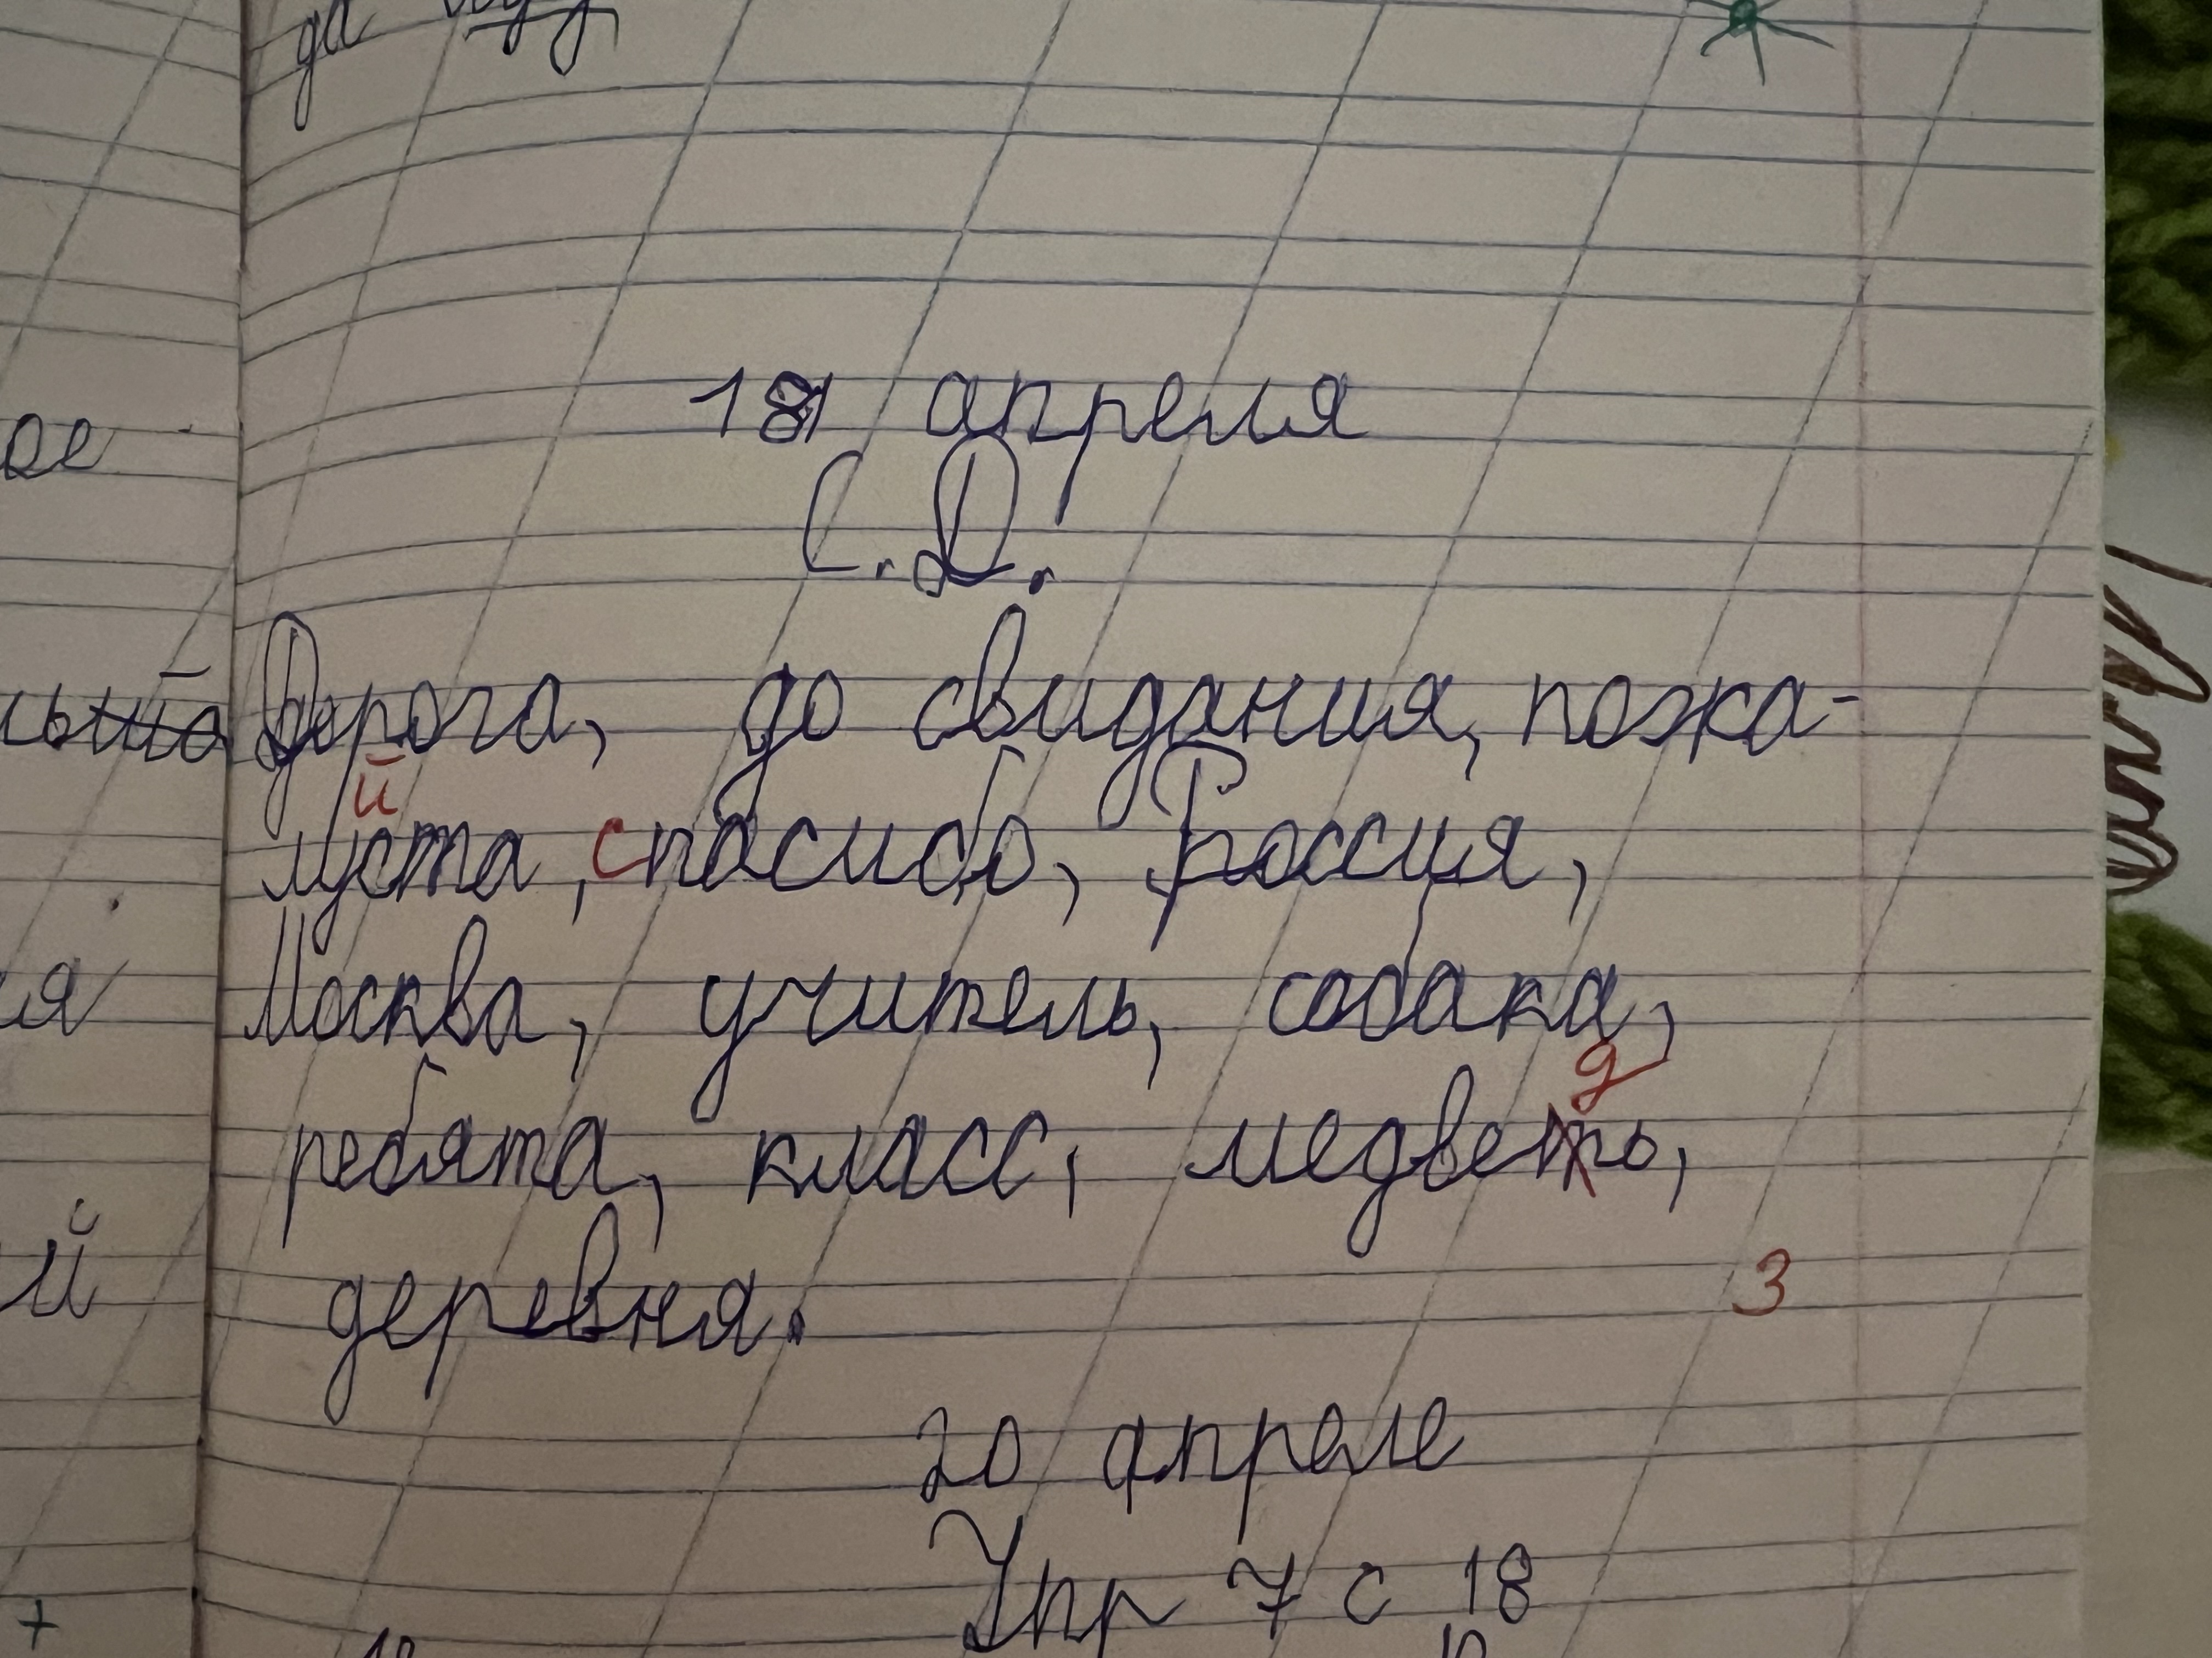 да
18 апреля
С.Д.
Дорога, до свидания, пожа-
й
луста, спасибо, Россия,
Москва, учитель, собака,
д
ребята, класс, медветь,
деревня.
3
20 апреле
Упр 7 с 18
ое
ия
ий
+